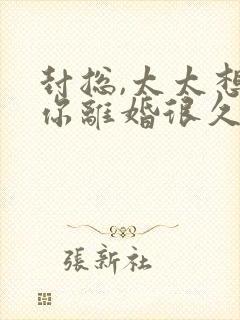 封总,太太想
你離婚很久
張新社